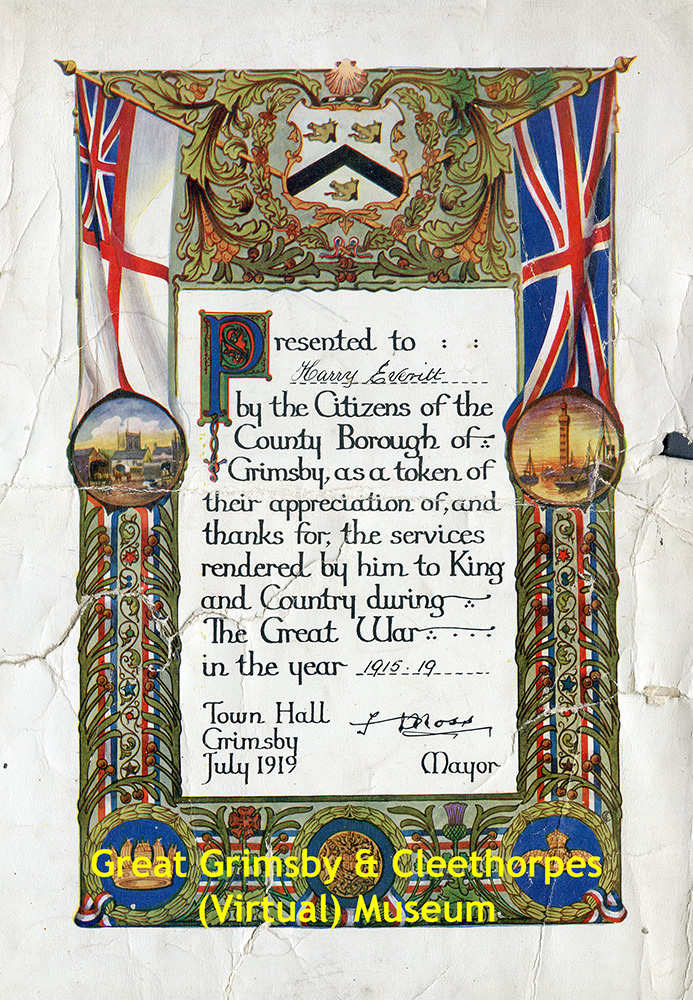 Presented to : :
Harry Everitt
by the Citizens of the
County Borough of
Grimsby, as a token of
their appreciation of, and
thanks for, the services
rendered by him to King
and Country during
The Great War
in the year 1915-19
Town Hall
Grimsby
July 1919
Mayor
Great Grimsby & Cleethorpes
(Virtual) Museum